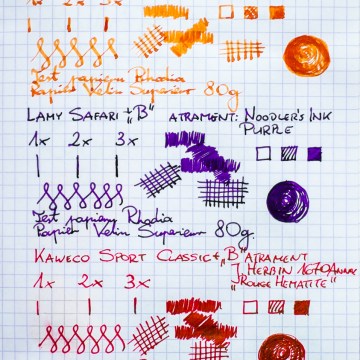 1x 2x 3x
Test papieru Rhodia
Papier Velin Superieur 80g
LAMY SAFARI + „B" ATRAMENT: NOODLER'S INK
PURPLE
1x 2x 3x
Test papieru Rhodia
Papier Velin Superieur 80g.
KAWECO SPORT CLASSIC + „B" ATRAMENT
J. HERBIN 1670
„ROUGE HEMATITE"
1x 2x 3x